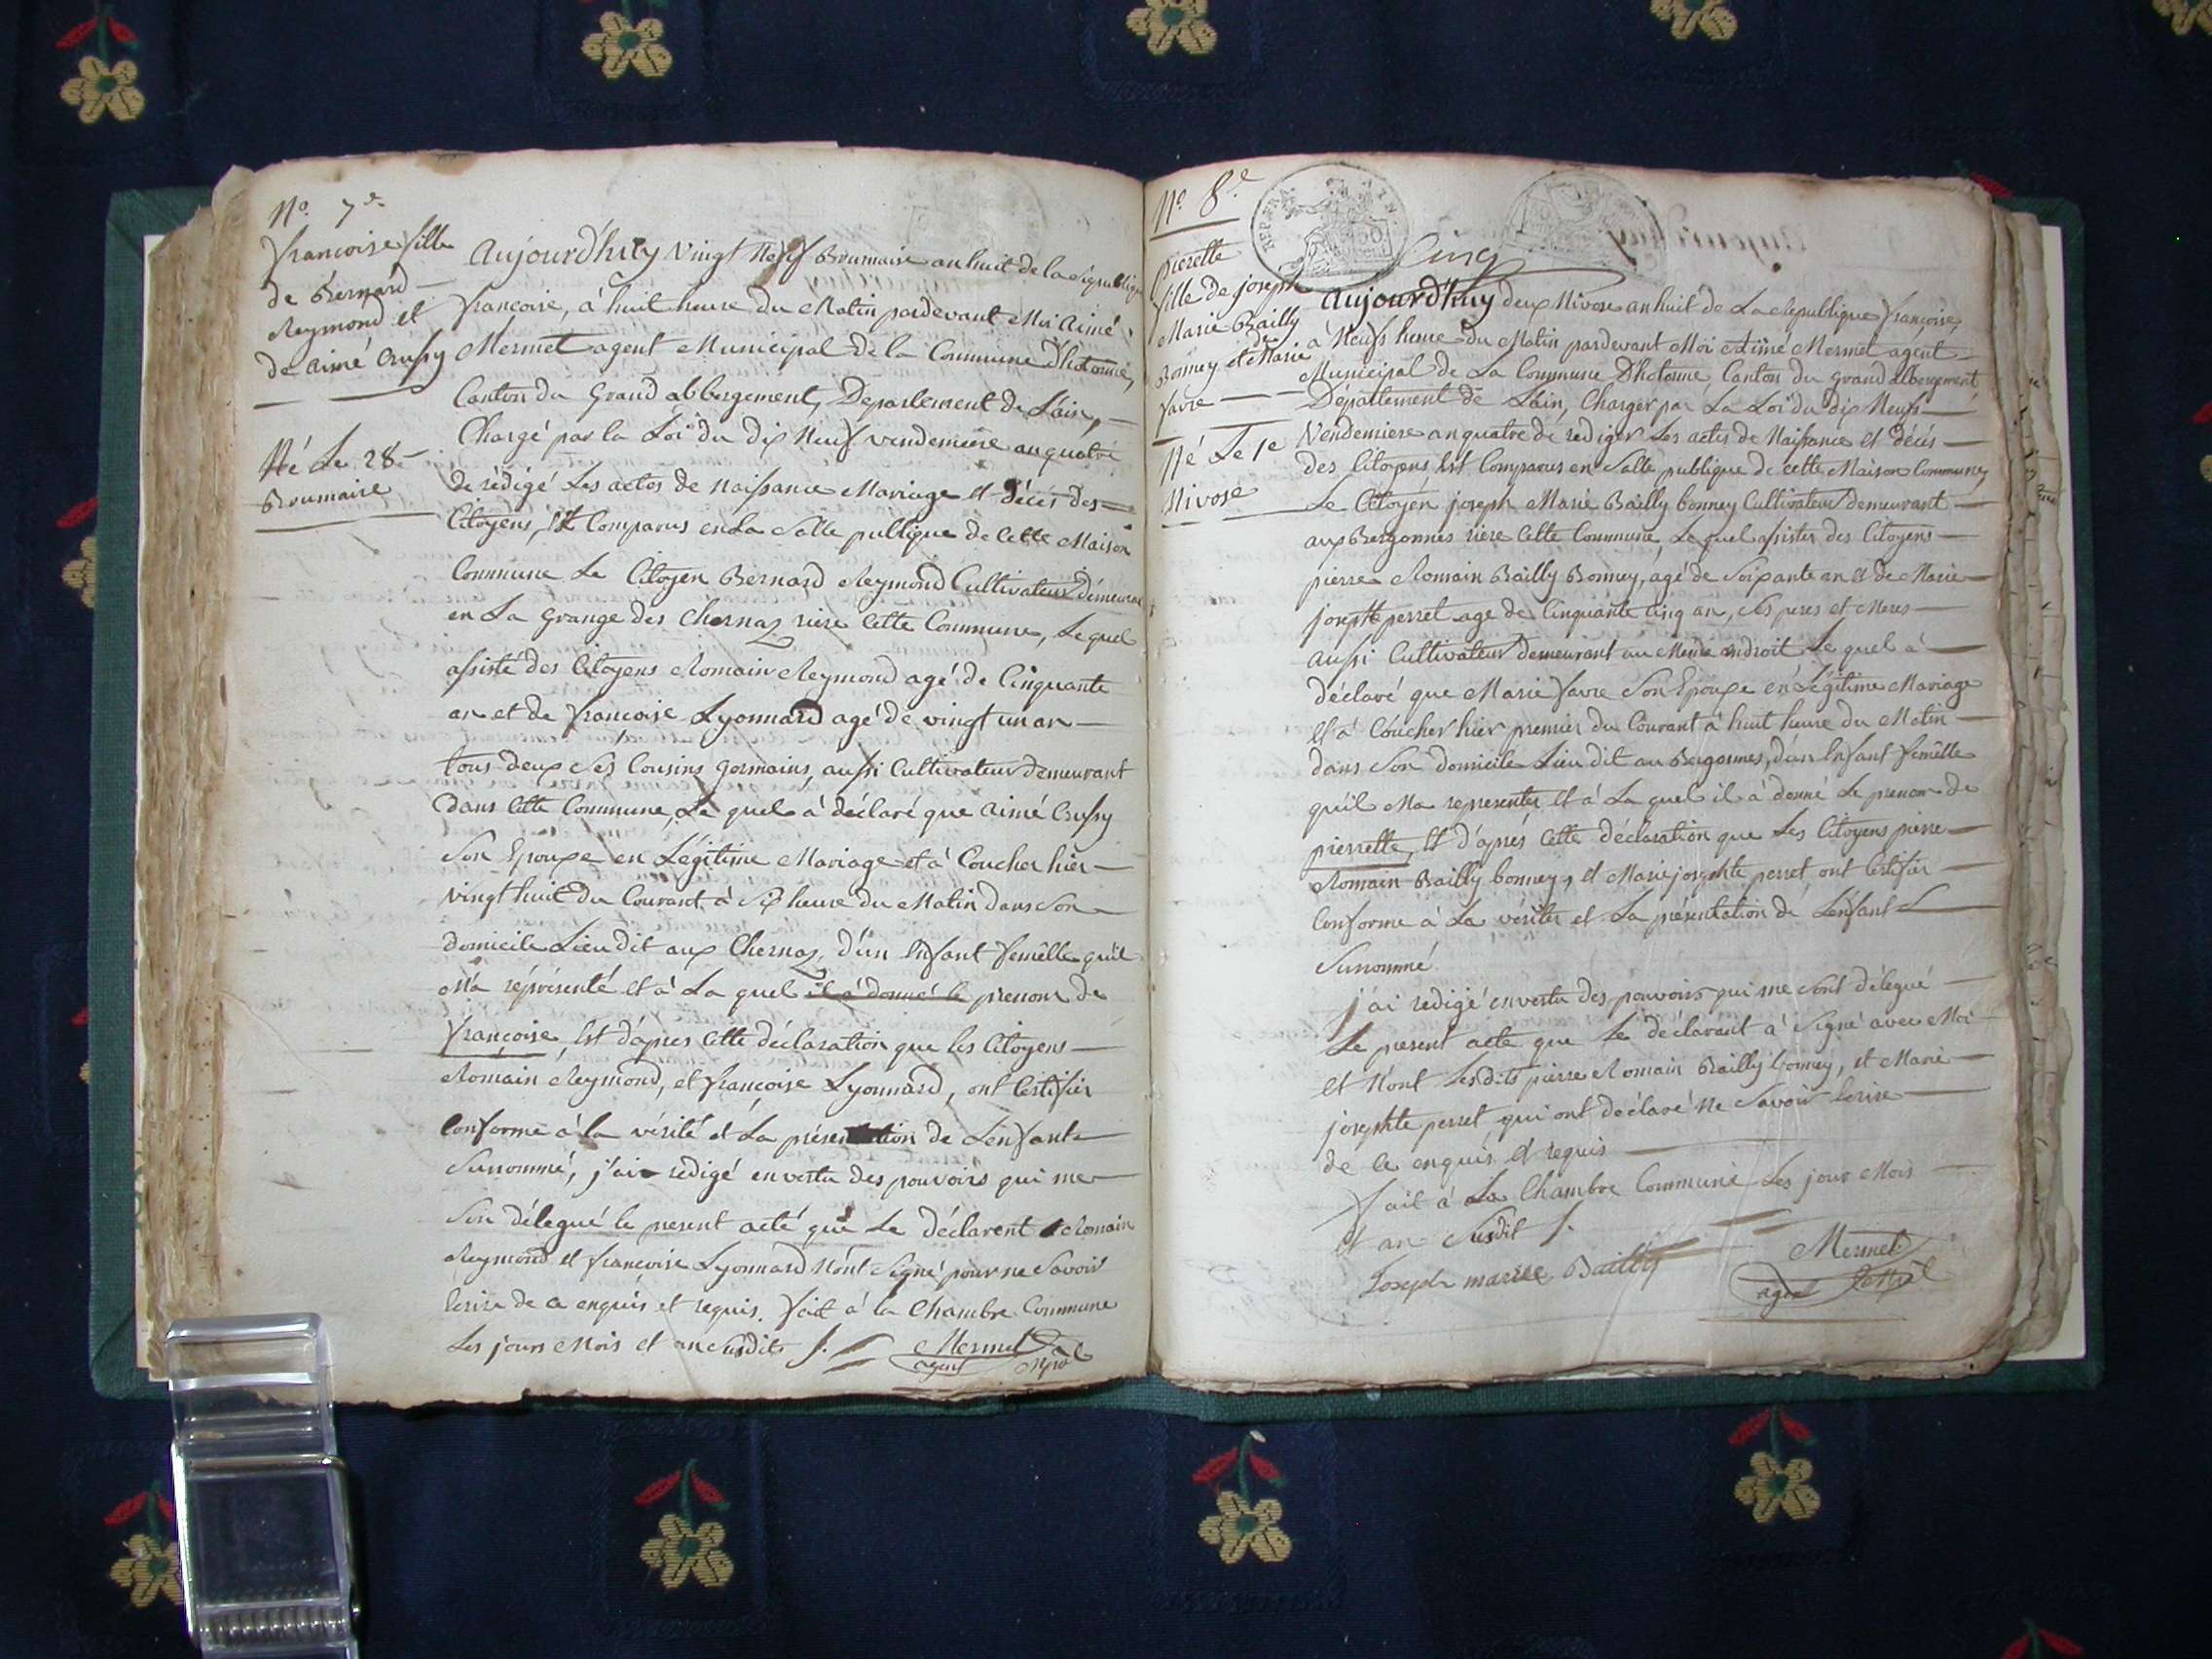 No. 7e.
françoise fille
de Bernard
Reymond et
de aimé Crussy
Né Le 28
Brumaire
Aujourd'huy Vingt Neuf Brumaire an huit de la Republique
françoise, à huit heure du Matin pardevant Moi Aimé
Mermet agent Municipal de la Commune D'hotonne,
Canton du Grand abbergement, Departement de L'ain,
Chargé par la Loi du dix Neuf vendemiere an quatre
de rédigé Les actes de Naissance Mariage et décés des
Citoyens, Est Comparus en La Salle publique de Cette Maison
Commune Le Citoyen Bernard Reymond Cultivateur démeurant
en La grange des Chernaz riere Cette Commune, Lequel
assisté des Citoyens Romain Reymond agé de Cinquante
an et de françoise Lyonnard agé de vingt un an
tous deux Ses Cousins germains, aussi Cultivateur demeurant
dans Cette Commune, Le quel à déclaré que aimé Crussy
Son Epouse en Légitime Mariage et à Coucher hier
vingt huit du Courant à Six heure du Matin dans Son
domicile Lieu dit aux Chernaz, d'un Enfant femêlle qu'il
M'a réprésenté et à La quel il à donné le prenom de
françoise, Est d'apres Cette déclaration que les Citoyens
Romain Reymond, et françoise Lyonnard, ont Certifier
Conforme à la vérité et La présentation de L'enfant
Surnommé, j'ai redigé en vertu des pouvoirs qui me
Son délegué le present acté que Le déclarent Romain
Reymond et françoise Lyonnard N'ont Signé pour ne Savoir
Ecrire de ce enquis et requis. fait à la Chambre Commune
Les jours Mois et an Susdits
Mermet
agent Mpal
No. 8e
REP. FRA.
AIN.
Cinq
Pierette
fille de joseph
Marie Bailly
Bonney et de Marie
favre
Né Le 1e
Nivose
Aujourd'huy deux Nivose an huit de La Republique françoise,
à Neufs heure du Matin pardevant Moi Aimé Mermet agent
Municipal de La Commune D'hotonne, Canton du grand abbergement
Département de L'ain, Charger par La Loi du dix Neufs
Vendemiere an quatre de rediger Les actes de Naissance et décés
des Citoyens, Est Comparus en Salle publique de cette Maison Commune
Le Citoyen joseph Marie Bailly bonney Cultivateur demeurant
aux Bergonnes riere Cette Commune, Le quel assister des Citoyens
pierre Romain Bailly Bonney, agé de Soixante an et de Marie
josephte perret age de Cinquante Cinq an, Ses peres et Meres
aussi Cultivateur demeurant au Même endroit Le quel à
déclaré que Marie favre Son Epouse en Légitime Mariage
Et à Coucher hier premier du Courant à huit heure du Matin
dans Son domicile Lieu dit au Bergonnes, d'un Enfant femêlle
qu'il Ma representer, Et à La quel il à donné Le prenom de
pierrette, Et d'aprés Cette déclaration que Les Citoyens pierre
Romain Bailly bonney, et Marie josephte perret ont Certifier
Conforme à La vériter et La présentation de L'enfant
Surnommé
j'ai redigé en vertu des pouvoirs qui me Sont délegué
Le present acte que Le déclarant à Signé avec Moi
et N'ont Lesdits pierre Romain Bailly bonney, et Marie
josephte perret qui ont declaré Ne Savoir Ecrire
de Ce enquis et requis
fait à La Chambre Commune Les jour Mois
Et an Susdit
Joseph marie Bailly
Mermet
agent